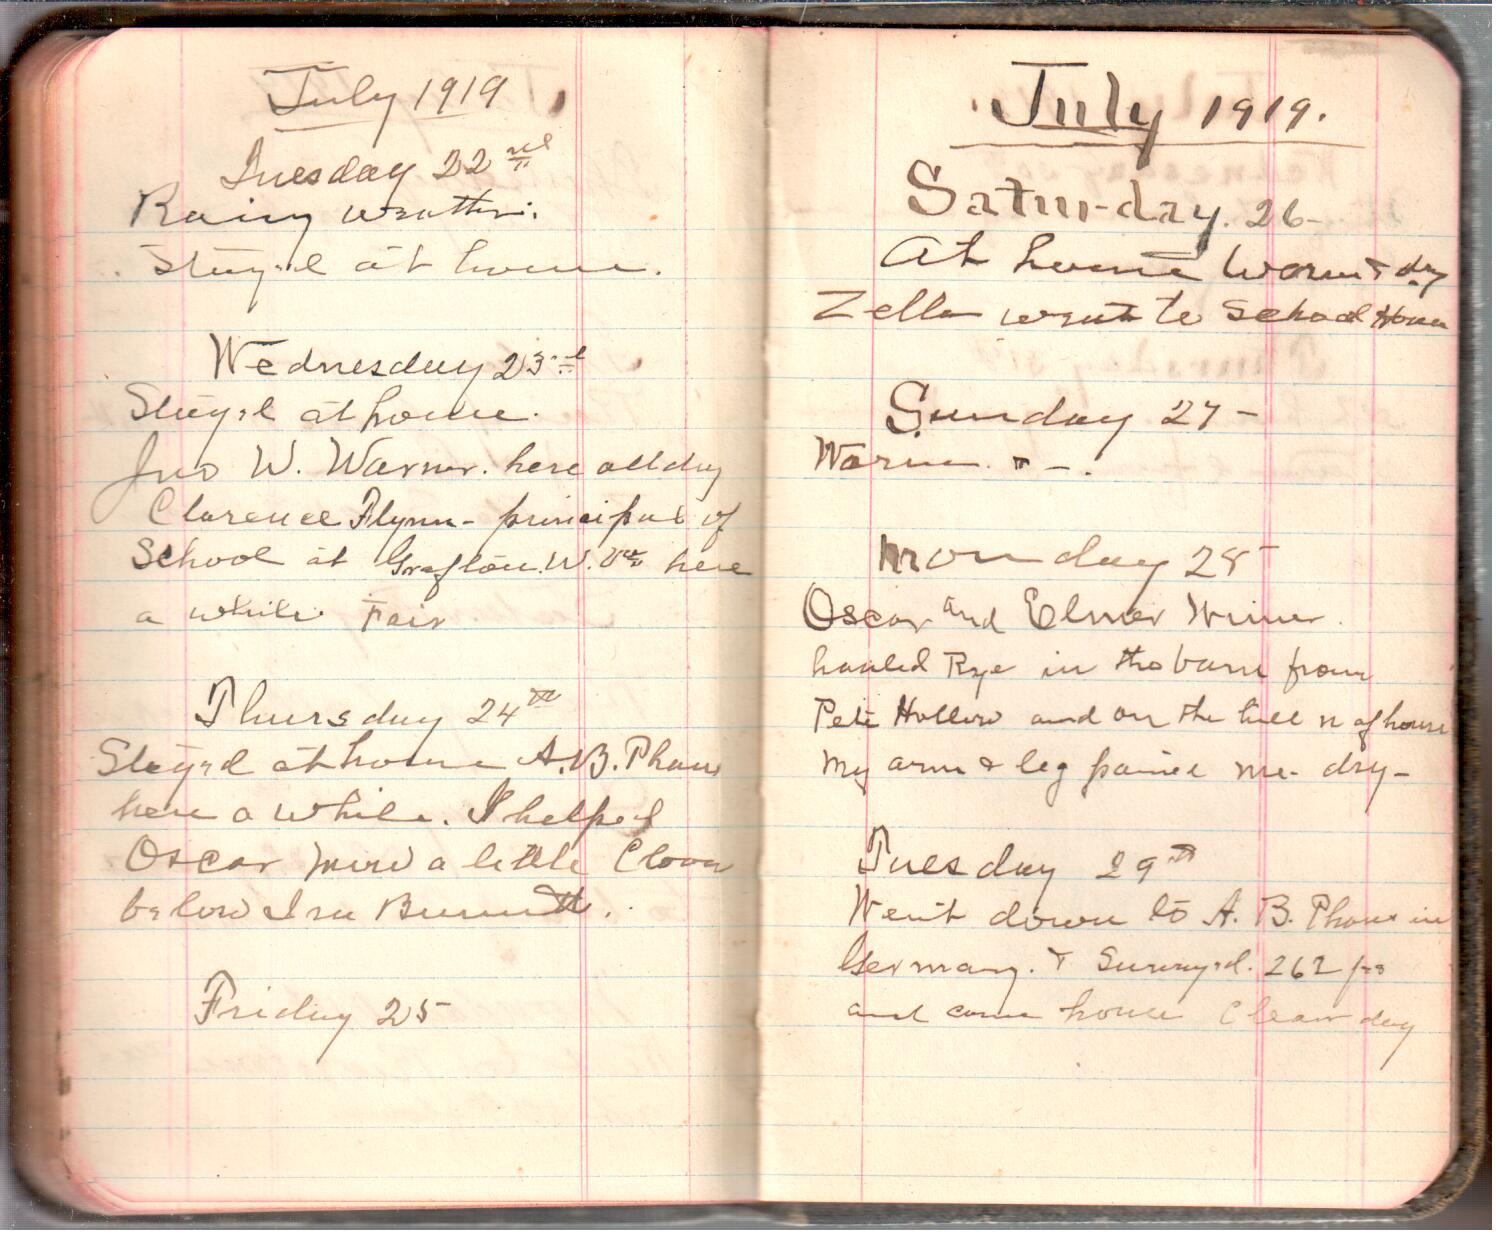 July 1919
Tuesday 22nd
Rainy weather.
Stayed at home.
Wednesday 23rd
Stayed at home.
Jno W. Warner. here all day
Clarence Flynn - principal of
School at Grafton. W. Va here
a while Fair
Thursday 24th
Stayed at home A. B. Phares
here a while. I helped
Oscar mow a little Clover
below Ira
Friday 25
July 1919.
Saturday. 26-
At home Warm & dry
Zella went to School House
Sunday 27-
Warm. & - .
Monday 28
Oscar and Elmer
hauled Rye in the barn from
Pete Hollow and on the hill n of house
My arm & leg pained me- dry-
Tuesday 29th
Went down to A. B. Phares in
Germany. & Surveyed. 262
and came home Clear day